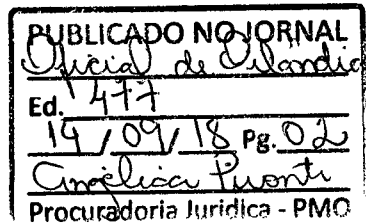 PUBLICADO NO JORNAL
Oficial de Orlândia
Ed. 477
14 / 09 / 18 Pg. 02
Angélica
Procuradoria Jurídica - PMO